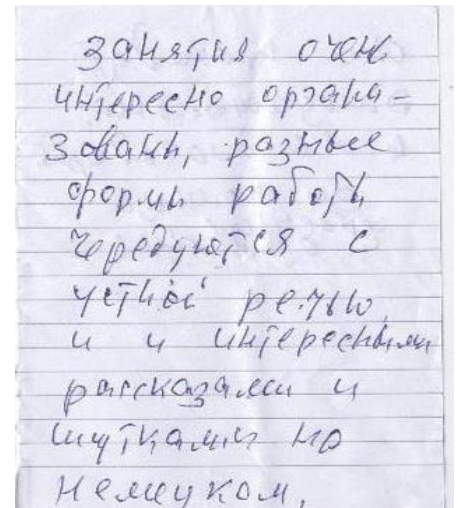 занятия очень
интересно органа-
зованы, разные
формы работы
чередуются с
устной речью
и и интересными
рассказами и
шутками на
немецком.